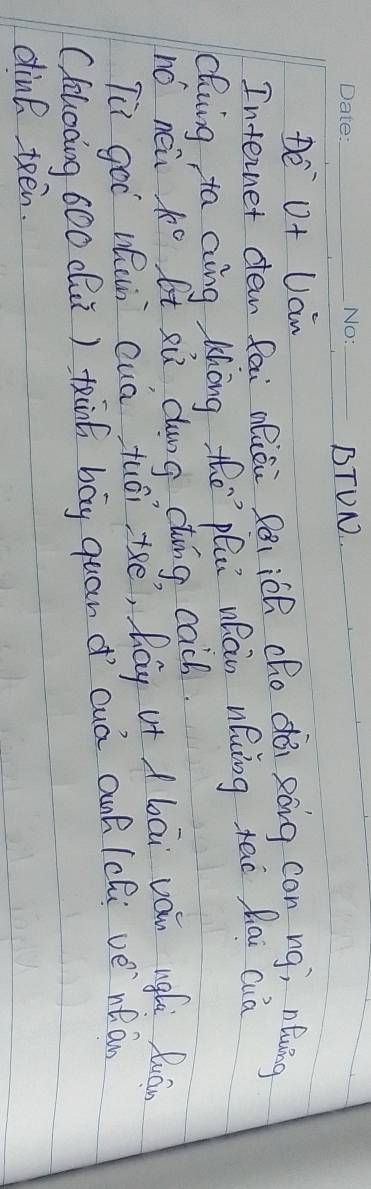 Date: No: BTVN.
Đề vt Văn
Internet đem lại nhiều lợi ích cho đời sống con ng', nhưng
chúng ta cũng không thể phủ nhận những tác hại của
nó nếu k° bt sử dụng đúng cách.
Từ góc nhìn của tuổi trẻ, hãy vt 1 bài văn nghị luận
(khoảng 600 chữ) trình bày quan đ' của anh / chị về nhận
định trên.